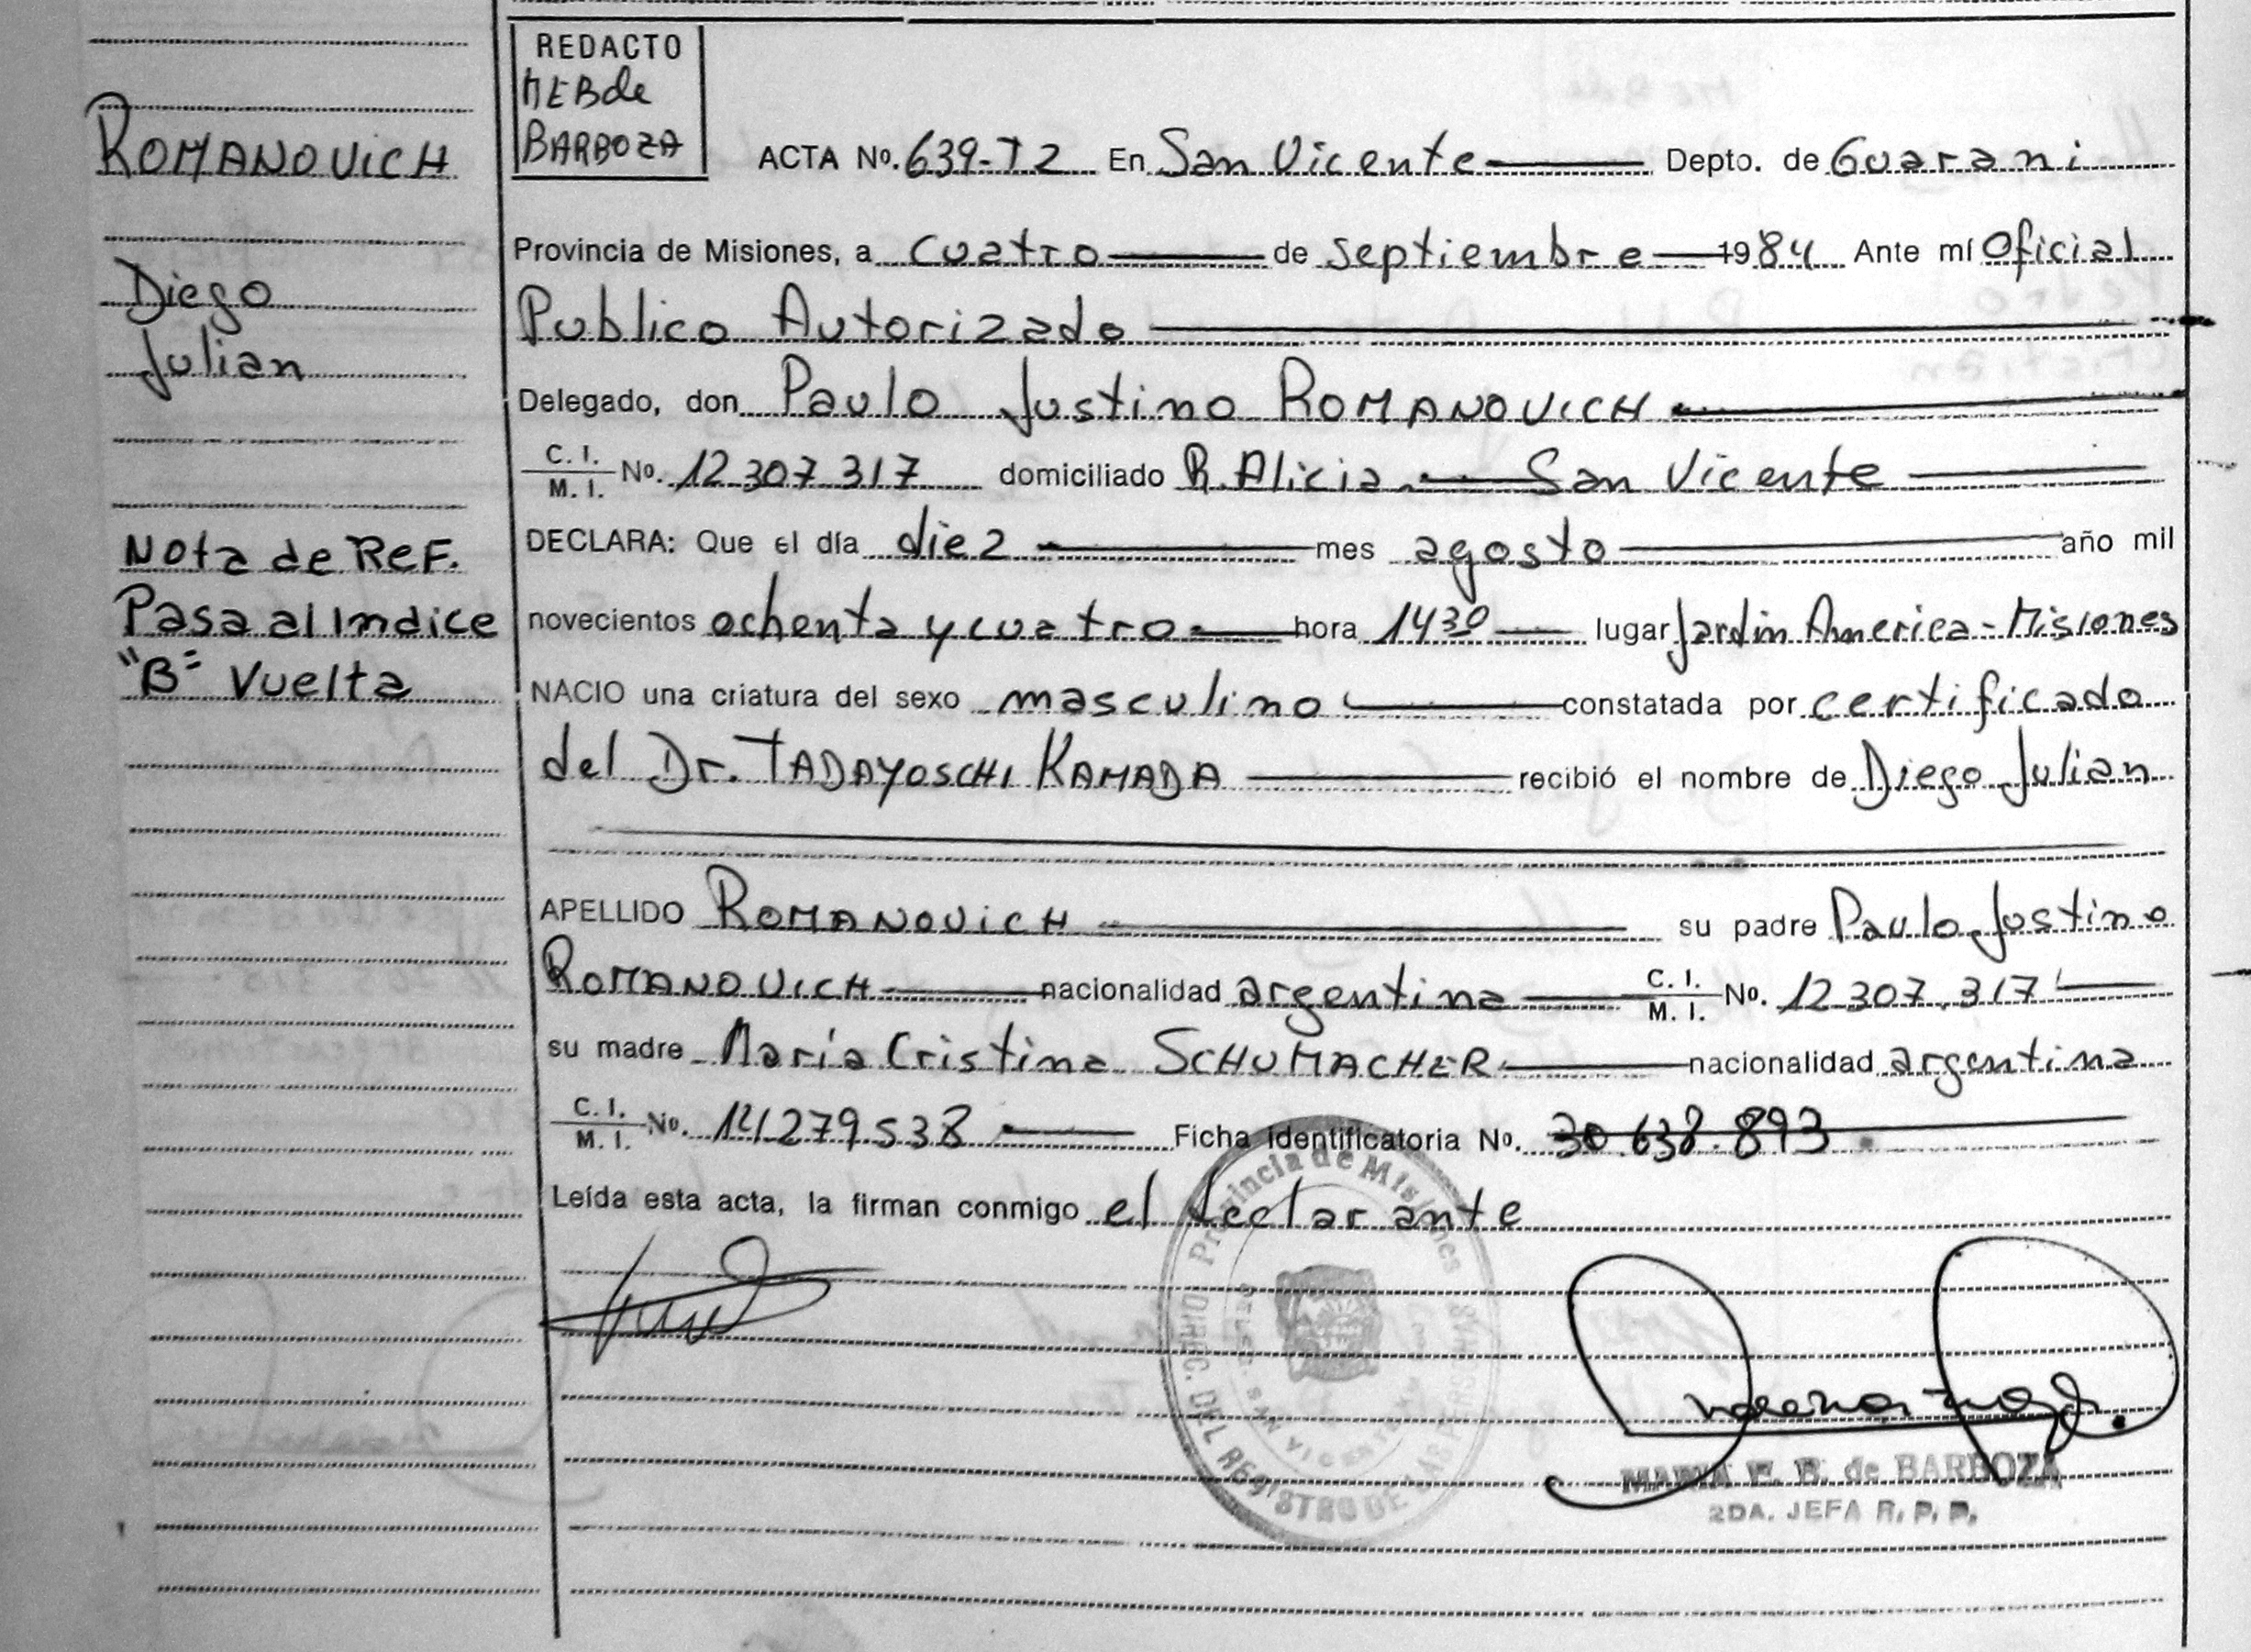 ROMANOVICH
Diego
Julian
Nota de Ref.
Pasa al Indice
"B" Vuelta
REDACTO
MEB de
BARBOZA
ACTA Nº. 639-T2 En San Vicente Depto. de Guarani
Provincia de Misiones, a cuatro de septiembre 1984 Ante mí Oficial
Publico Autorizado
Delegado, don Paulo Justino ROMANOVICH
C. I. / M. I. Nº. 12.307.317 domiciliado R. Alicia San Vicente
DECLARA: Que el día diez mes agosto año mil
novecientos ochenta y cuatro hora 1430 lugar Jardin America - Misiones
NACIO una criatura del sexo masculino constatada por certificado
del Dr. TADAYOSCHI KAMADA recibió el nombre de Diego Julian
APELLIDO ROMANOVICH su padre Paulo Justino
ROMANOVICH nacionalidad argentina C. I. / M. I. Nº. 12.307.317
su madre María Cristina SCHUMACHER nacionalidad argentina
C. I. / M. I. Nº. 14.279.538 Ficha Identificatoria Nº. 30.638.893
Leída esta acta, la firman conmigo el declarante
Provincia de Misiones
DEL REGISTRO DE LAS PERSONAS
SAN VICENTE
MARIA E. B. de BARBOZA
2DA. JEFA R. P. P.